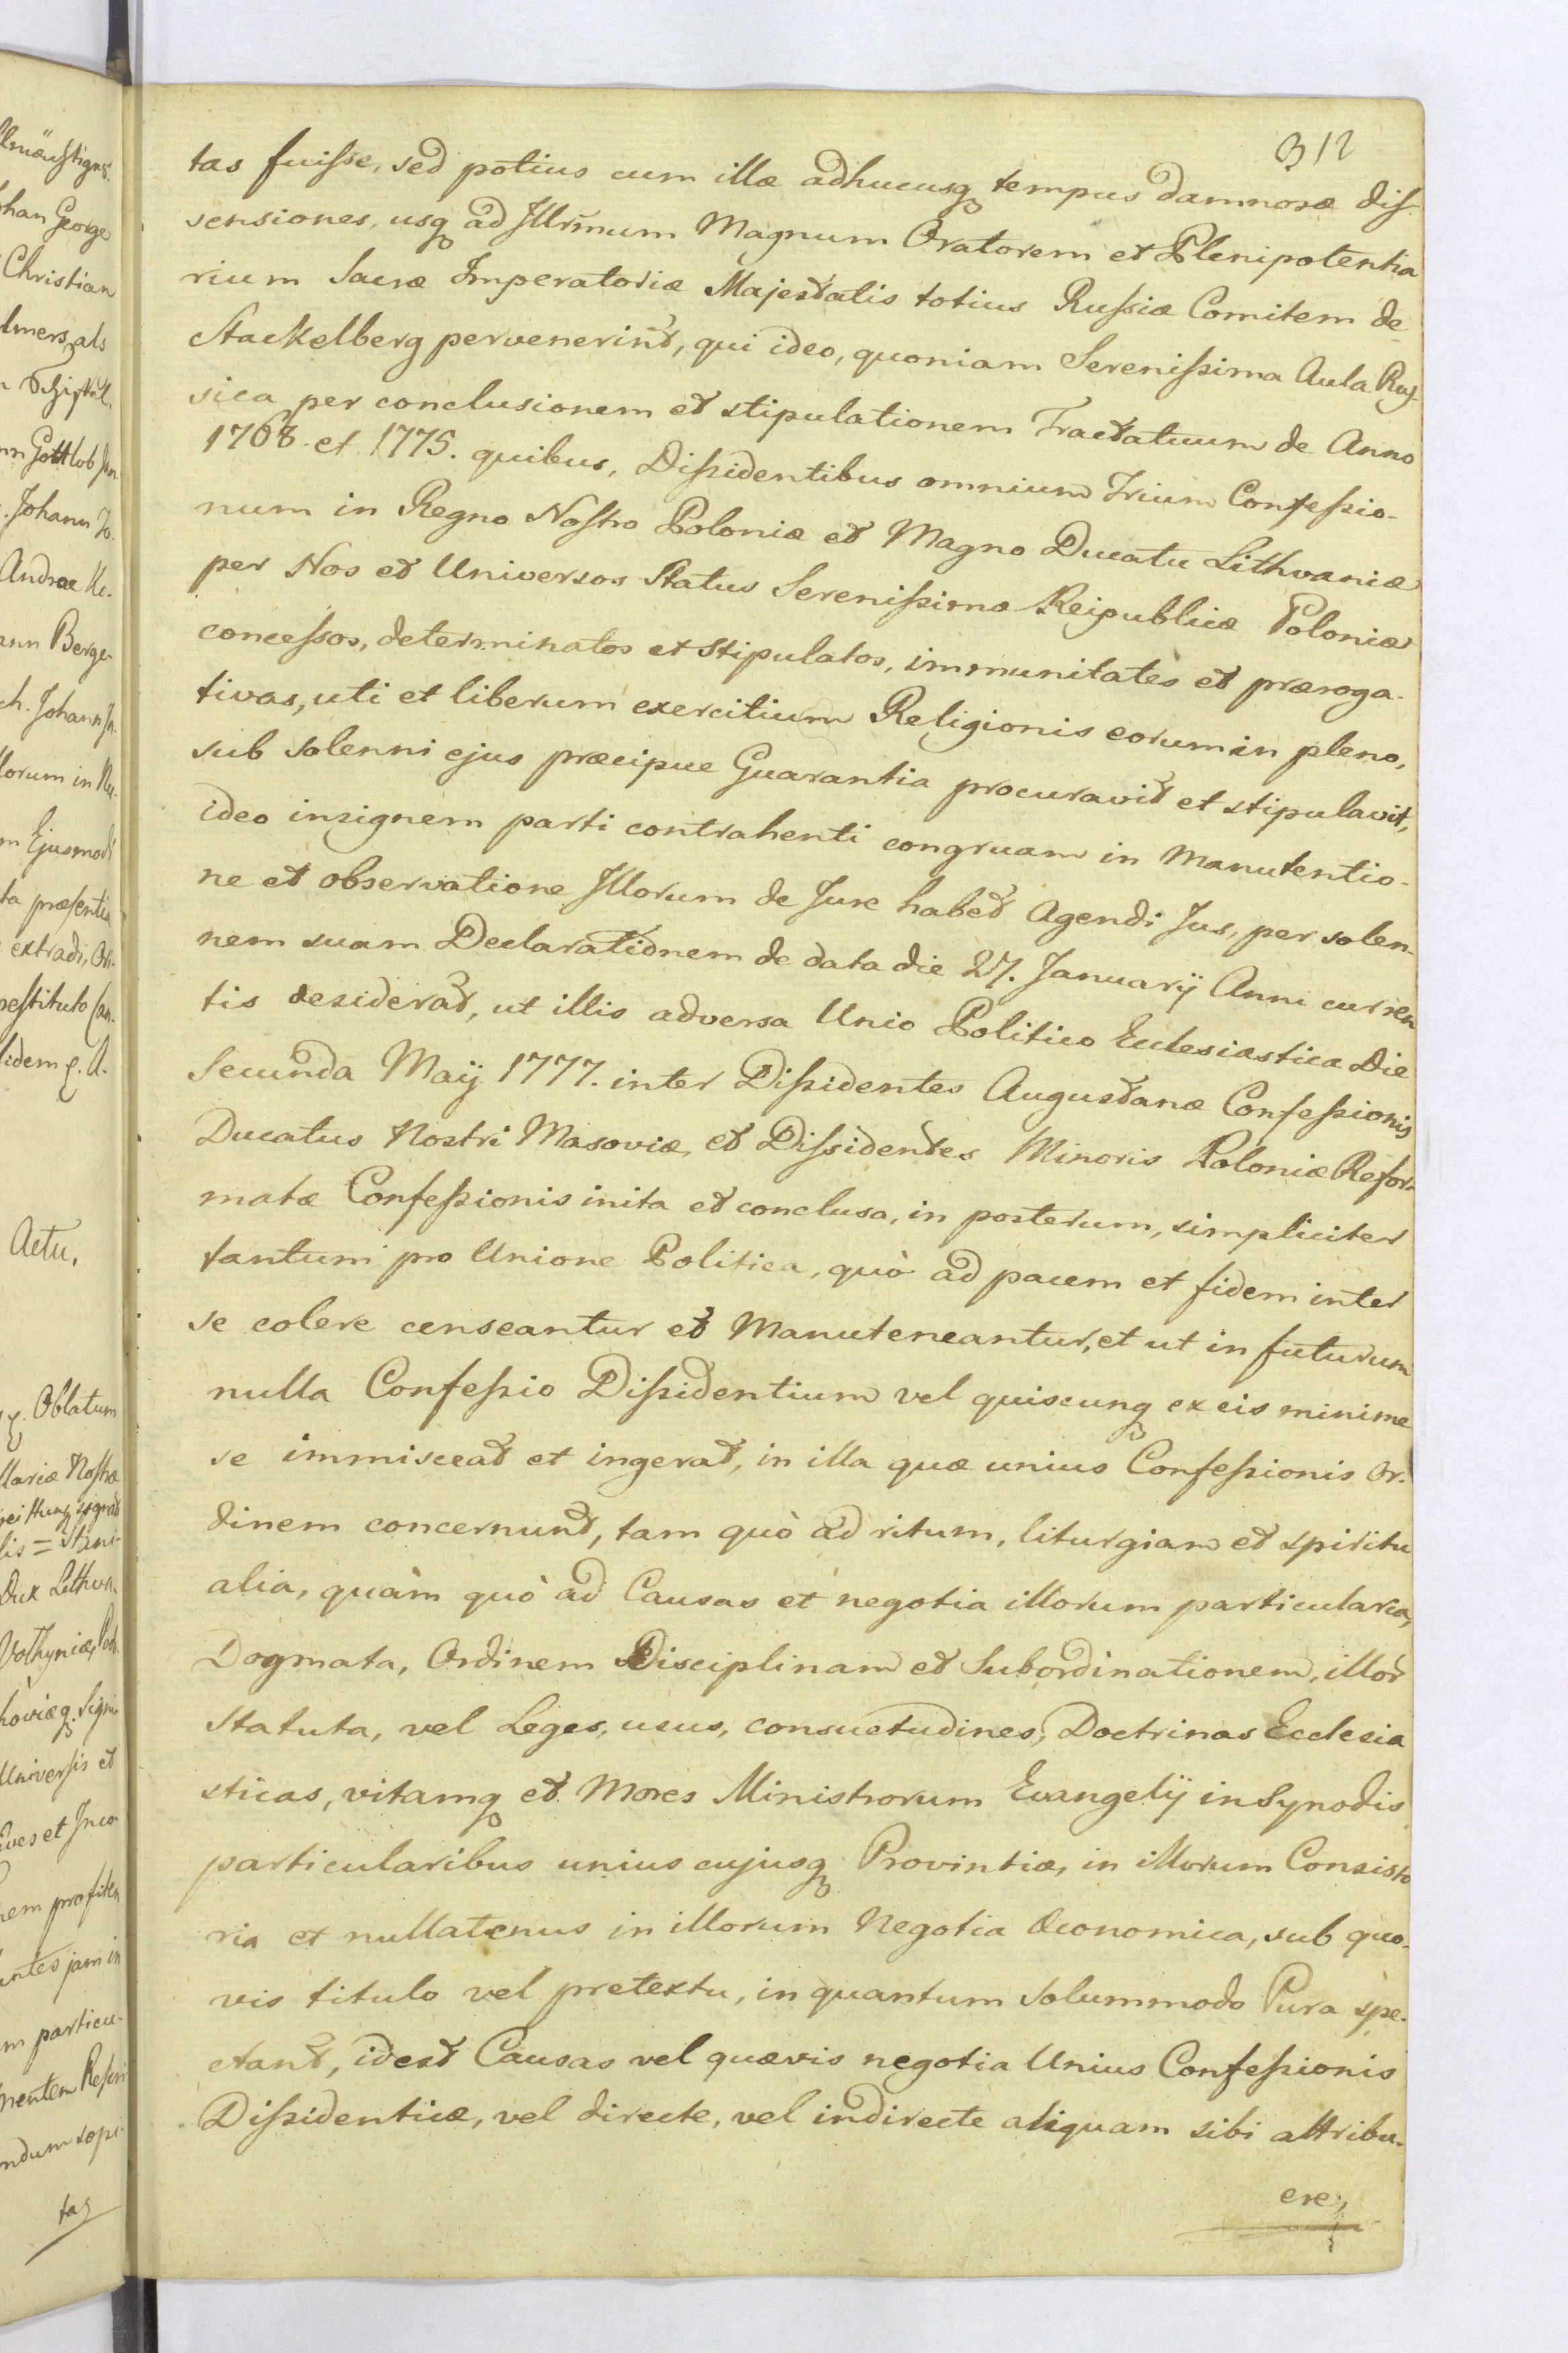 312
tas fuiſse, sed potius cum illæ adhucusq tempus damnosæ diſ-
sensiones, usq ad Illrm̃um Magnum Oratorem et Plenipotentia
rium Sacræ Imperatoriæ Majestatis totius Ruſsiæ Comitem de
Stackelberg pervenerint, qui ideo, quoniam Sereniſsima Aula Ruſ-
sica per conclusionem et stipulationem Tractatuum de Anno
1768. et 1775. quibus, Diſsidentibus omnium Trium Confeſsio-
num in Regno Noſtro Poloniæ et Magno Ducatu Lithvaniæ
per Nos et Universos Status Sereniſsimæ Reipublicæ Poloniæ
conceſsos, determinatos et stipulatos, immunitates et præroga-
tivas, uti et liberum exercitium Religionis eorum in pleno,
sub solenni ejus præcipue Guarantia procuravit et stipulavit,
ideo insignem parti contrahenti congruam in Manutentio-
ne et observatione Illorum de Jure habet Agendi Jus, per solen-
nem suam Declarationem de data die 27. Januarij Anni curren
tis desiderat, ut illis adversa Unio Politico Ecclesiastica Die
Secunda Maij 1777. inter Diſsidentes Augustanæ Confeſsionis
Ducatus Nostri Masoviæ, et Diſsidentes Minoris Poloniæ Refor-
matæ Confeſsionis inita et conclusa, in posterum, simpliciter
tantum pro Unione Politica, quò ad pacem et fidem inter
se colere censeantur et Manuteneantur, et ut in futurum
nulla Confeſsio Diſsidentium vel quiscunq ex eis minime
se immisceat et ingerat, in illa quæ unius Confeſsionis Or-
dinem concernunt, tam quò ad ritum, liturgiam et spiritu
alia, quàm quò ad Causas et negotia illorum particularia,
Dogmata, Ordinem Disciplinam et Subordinationem, illor
Statuta, vel Leges, usus, consuetudines, Doctrinas Ecclesia
sticas, vitamq et Mores Ministrorum Evangelij in Synodis
particularibus unius cujusq Provintiæ, in illorum Consisto
ria et nullatenus in illorum Negotia Œconomica, sub quo-
vis titulo vel pretextu, in quantum solummodo Pura spe-
ctant, idest Causas vel quævis negotia Unius Confeſsionis
Diſsidenticæ, vel directe, vel indirecte aliquam sibi attribu-
ere;
han George
Christian
lmers, als
Gottlob
Johann Jo.
Andreæ
ann Berge-
ch. Johann
lorum in
m Ejusmodi
ta præſentia
extradi, Ori-
reſtituto Can-
idem
Actu.
Oblatum
llariæ Noſtræ
lis = Stani-
Dux Lithva-
Volhyniæ,
Universis et
ives et Inco
nem profiten
antes jam in
m particu-
ndum sopi-
tas